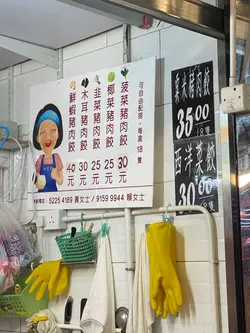 可自由配搭，每盒18隻
菠菜豬肉餃 30元
椰菜豬肉餃 25元
韭菜豬肉餃 25元
木耳豬肉餃 30元
鮮蝦豬肉餃 40元
5225 4189 黃女士 / 9159 9944 賴女士
粟米豬肉餃
35.00
西洋菜餃
30.00